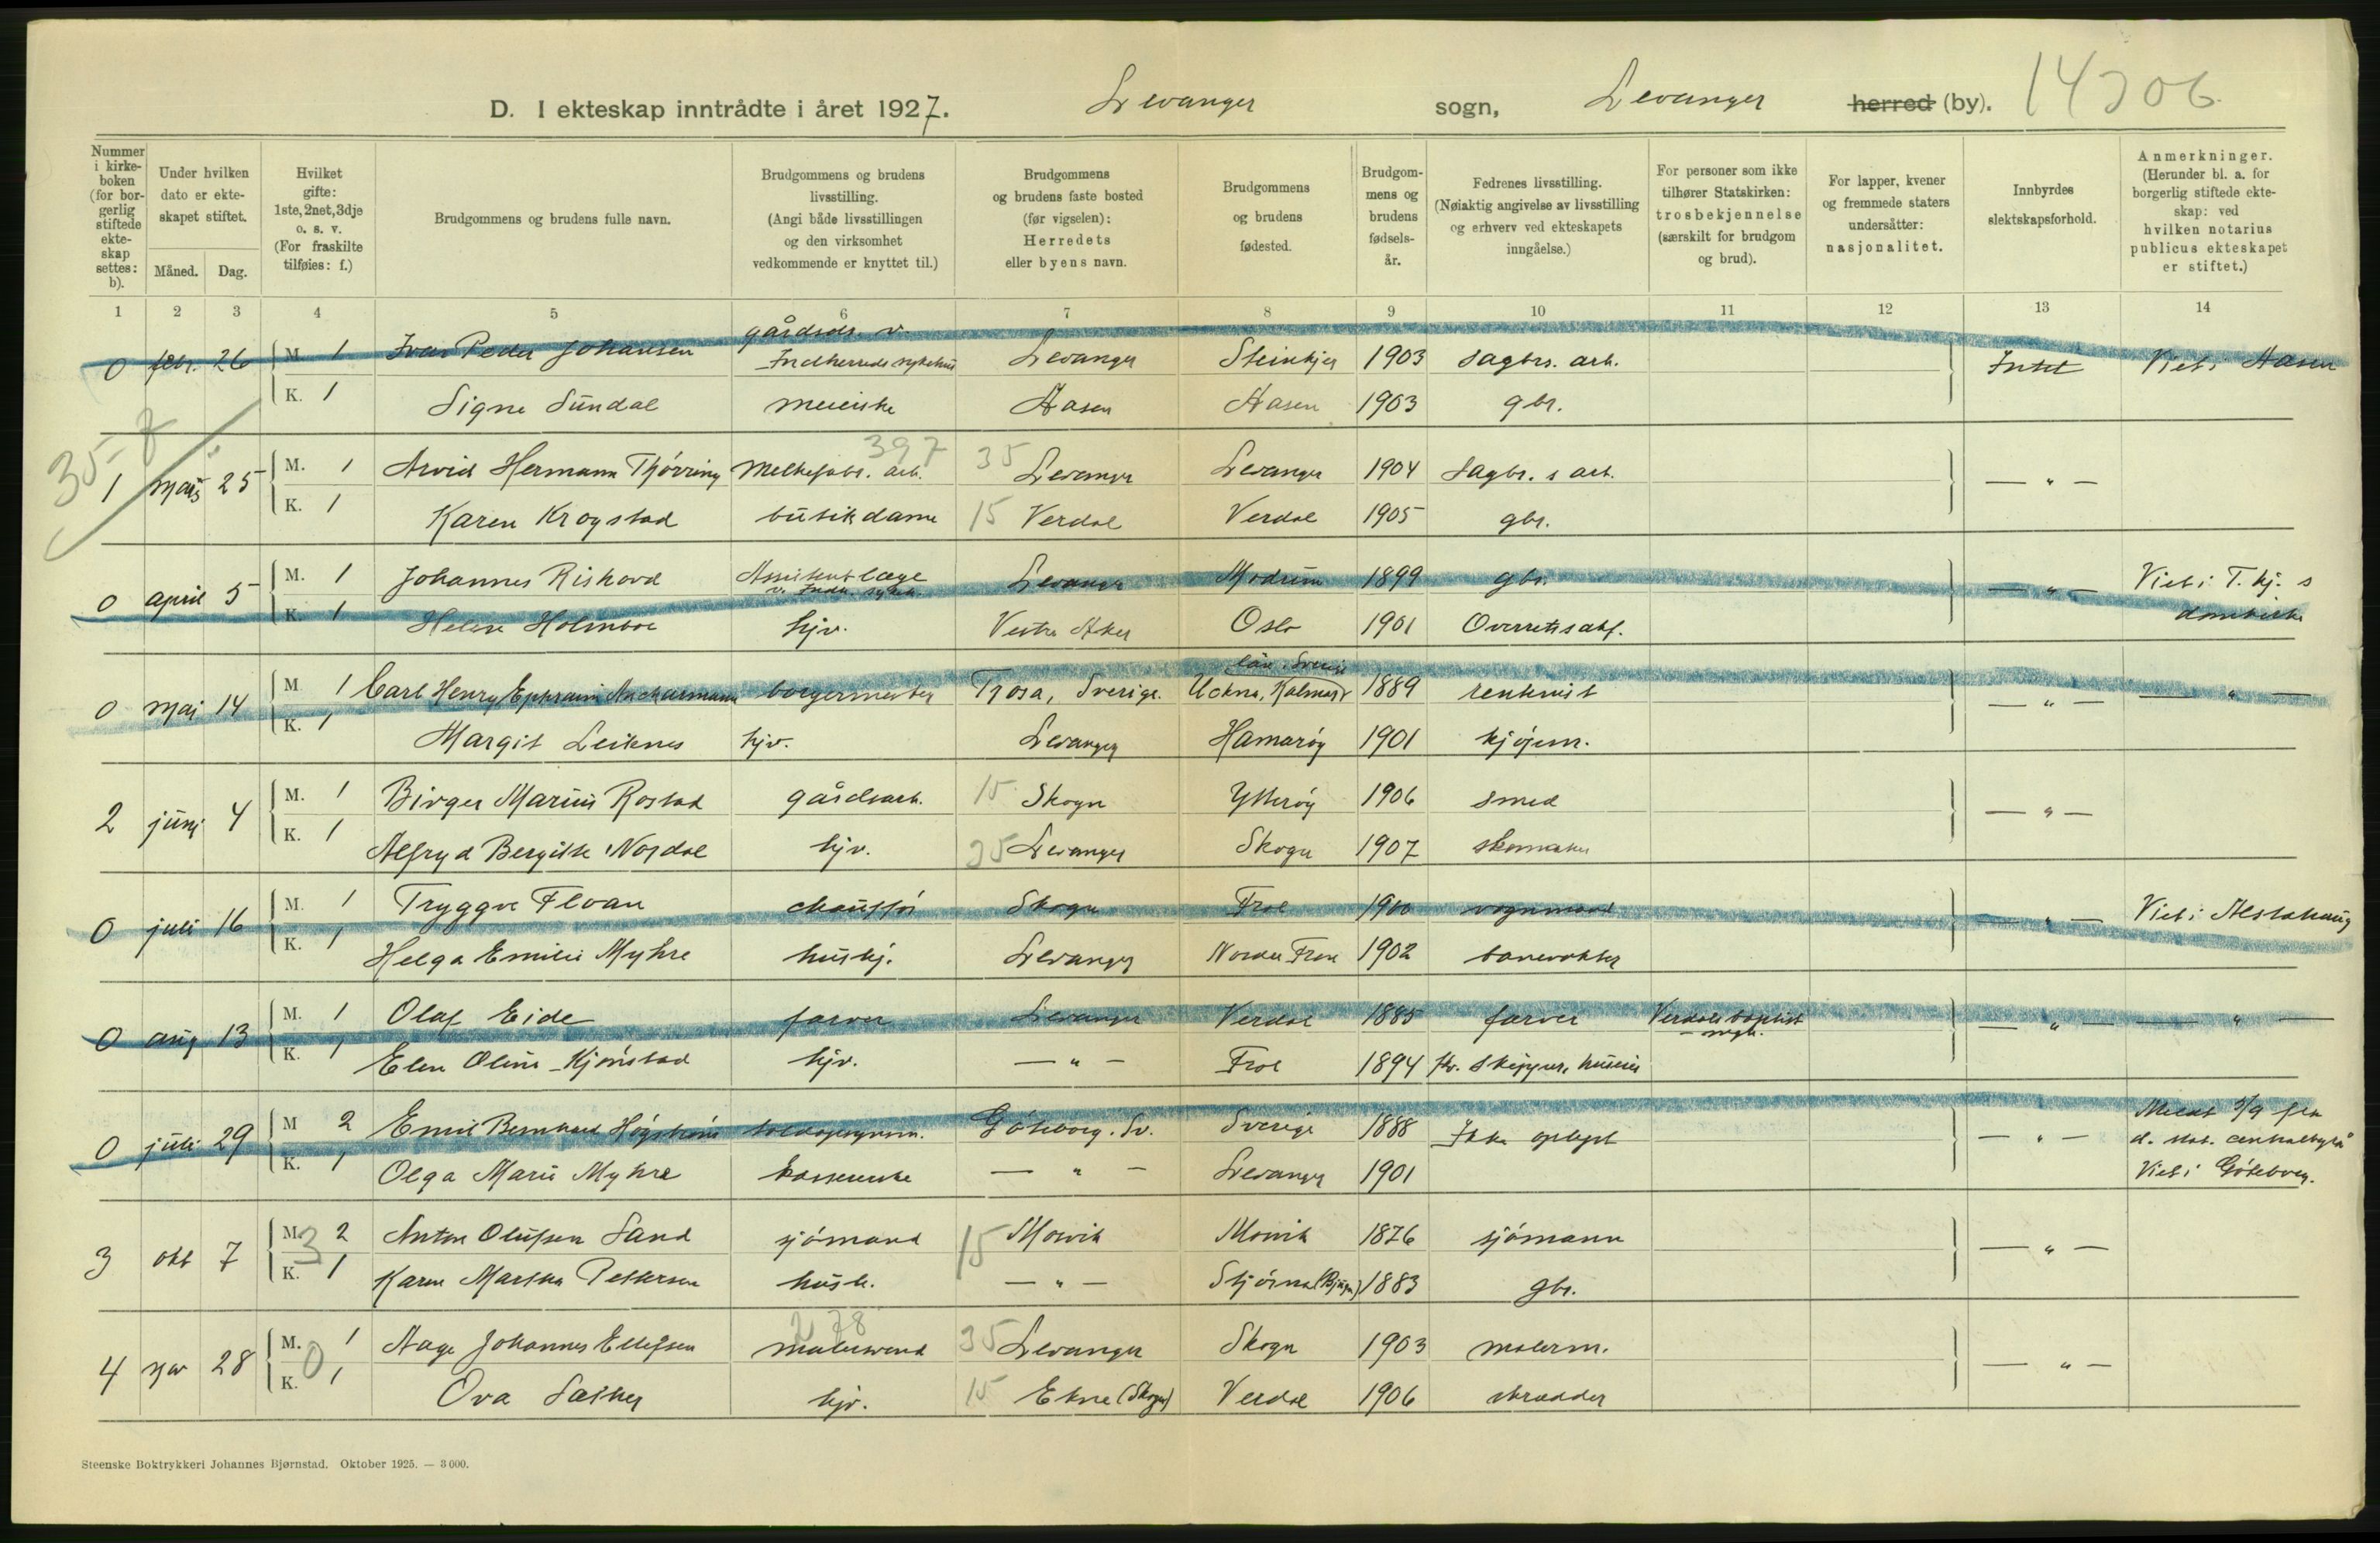 D. I ekteskap inntrådte i året 1927. Levanger sogn, Levanger herred (by). 14306
Nummer i kirkeboken (for borgerlig stiftede ekteskap settes: b).
Under hvilken dato er ekteskapet stiftet.
Måned. Dag.
Hvilket gifte: 1ste, 2net, 3dje o. s. v. (For fraskilte tilføies: f.)
Brudgommens og brudens fulle navn.
Brudgommens og brudens livsstilling. (Angi både livsstillingen og den virksomhet vedkommende er knyttet til.)
Brudgommens og brudens faste bosted (før vigselen): Herredets eller byens navn.
Brudgommens og brudens fødested.
Brudgommens og brudens fødselsår.
Fedrenes livsstilling. (Nøiaktig angivelse av livsstilling og erhverv ved ekteskapets inngåelse.)
For personer som ikke tilhører Statskirken: trosbekjennelse (særskilt for brudgom og brud).
For lapper, kvener og fremmede staters undersåtter: nasjonalitet.
Innbyrdes slektskapsforhold.
Anmerkninger. (Herunder bl. a. for borgerlig stiftede ekteskap: ved hvilken notarius publicus ekteskapet er stiftet.)
1 2 3 4 5 6 7 8 9 10 11 12 13 14
gårdsdr. v.
0 febr. 26 M. 1 Ivar Peder Johansen Indherreds sykehus Levanger Steinkjer 1903 sagbrs. arb. Intet Viet i Aasen
K. 1 Signe Sundal meierske Aasen Aasen 1903 gbr.
397 35
1 mars 25 M. 1 Arvid Hermann Thörring Melkefabr. arb. Levanger Levanger 1904 Sagbr.s arb. — " —
K. 1 Karen Krogstad butikdame 15 Verdal Verdal 1905 gbr.
0 april 5 M. 1 Johannes Rishovd Assistentlæge Levanger Modum 1899 gbr. — " — Viet i T.hj.s
v. Indh. sykeh.
K. 1 Helene Holmboe hjv. Vestre Aker Oslo 1901 Overretssakf. domkirke
län. Sverige
0 mai 14 M. 1 Carl Henry Ephraim borgermester Trosa, Sverige. Ukna, Kalmar 1889 rentenist — " — — " —
K. 1 Margit Leiknes hjv. Levanger Hamarøy 1901 kjøpm.
2 juni 4 M. 1 Birger Marius Rostad gårdsarb. 15 Skogn Ytterøy 1906 smed — " —
K. 1 Alfryd Bergitte Nordal hjv. 35 Levanger Skogn 1907 skomaker
0 juli 16 M. 1 Tryggve Floan chauffør Skogn Frol 1900 vognmand — " — Viet i Alstahaug
K. 1 Helga Emilie Myhre hushj. Levanger Nordre Fron 1902 banevokter
0 aug 13 M. 1 Olaf Eide farver Levanger Verdal 1885 farver Verdals baptist — " — — " —
— mgh.
K. 1 Elen Oline Kjønstad hjv. — " — Frol 1894 fhv. skipper, huseier
Meldt 3/9 fra
0 juli 29 M 2 Emil Bernhard Högström Göteborg. Sv. Sverige 1888 Ikke oplyst — " — d. stat. centralbyrå
K. 1 Olga Marie Myhre kassererske — " — Levanger 1901 Viet i Göteborg.
3 okt 7 M. 2 Anton Olufsen Sand sjømand 15 Mosvik Mosvik 1876 sjømann — " —
K. 1 Karen Martha Pettersen hush. — " — Stjørna (Bjugn) 1883 gbr.
278
4 nov 28 M. 1 Aage Johannes Ellefsen malersvend 35 Levanger Skogn 1903 malerm. — " —
K. 1 Ova Sæther hjv. 15 Ekne (Skogn) Verdal 1906 skrædder
Steenske Boktrykkeri Johannes Bjørnstad. Oktober 1925. — 3 000.